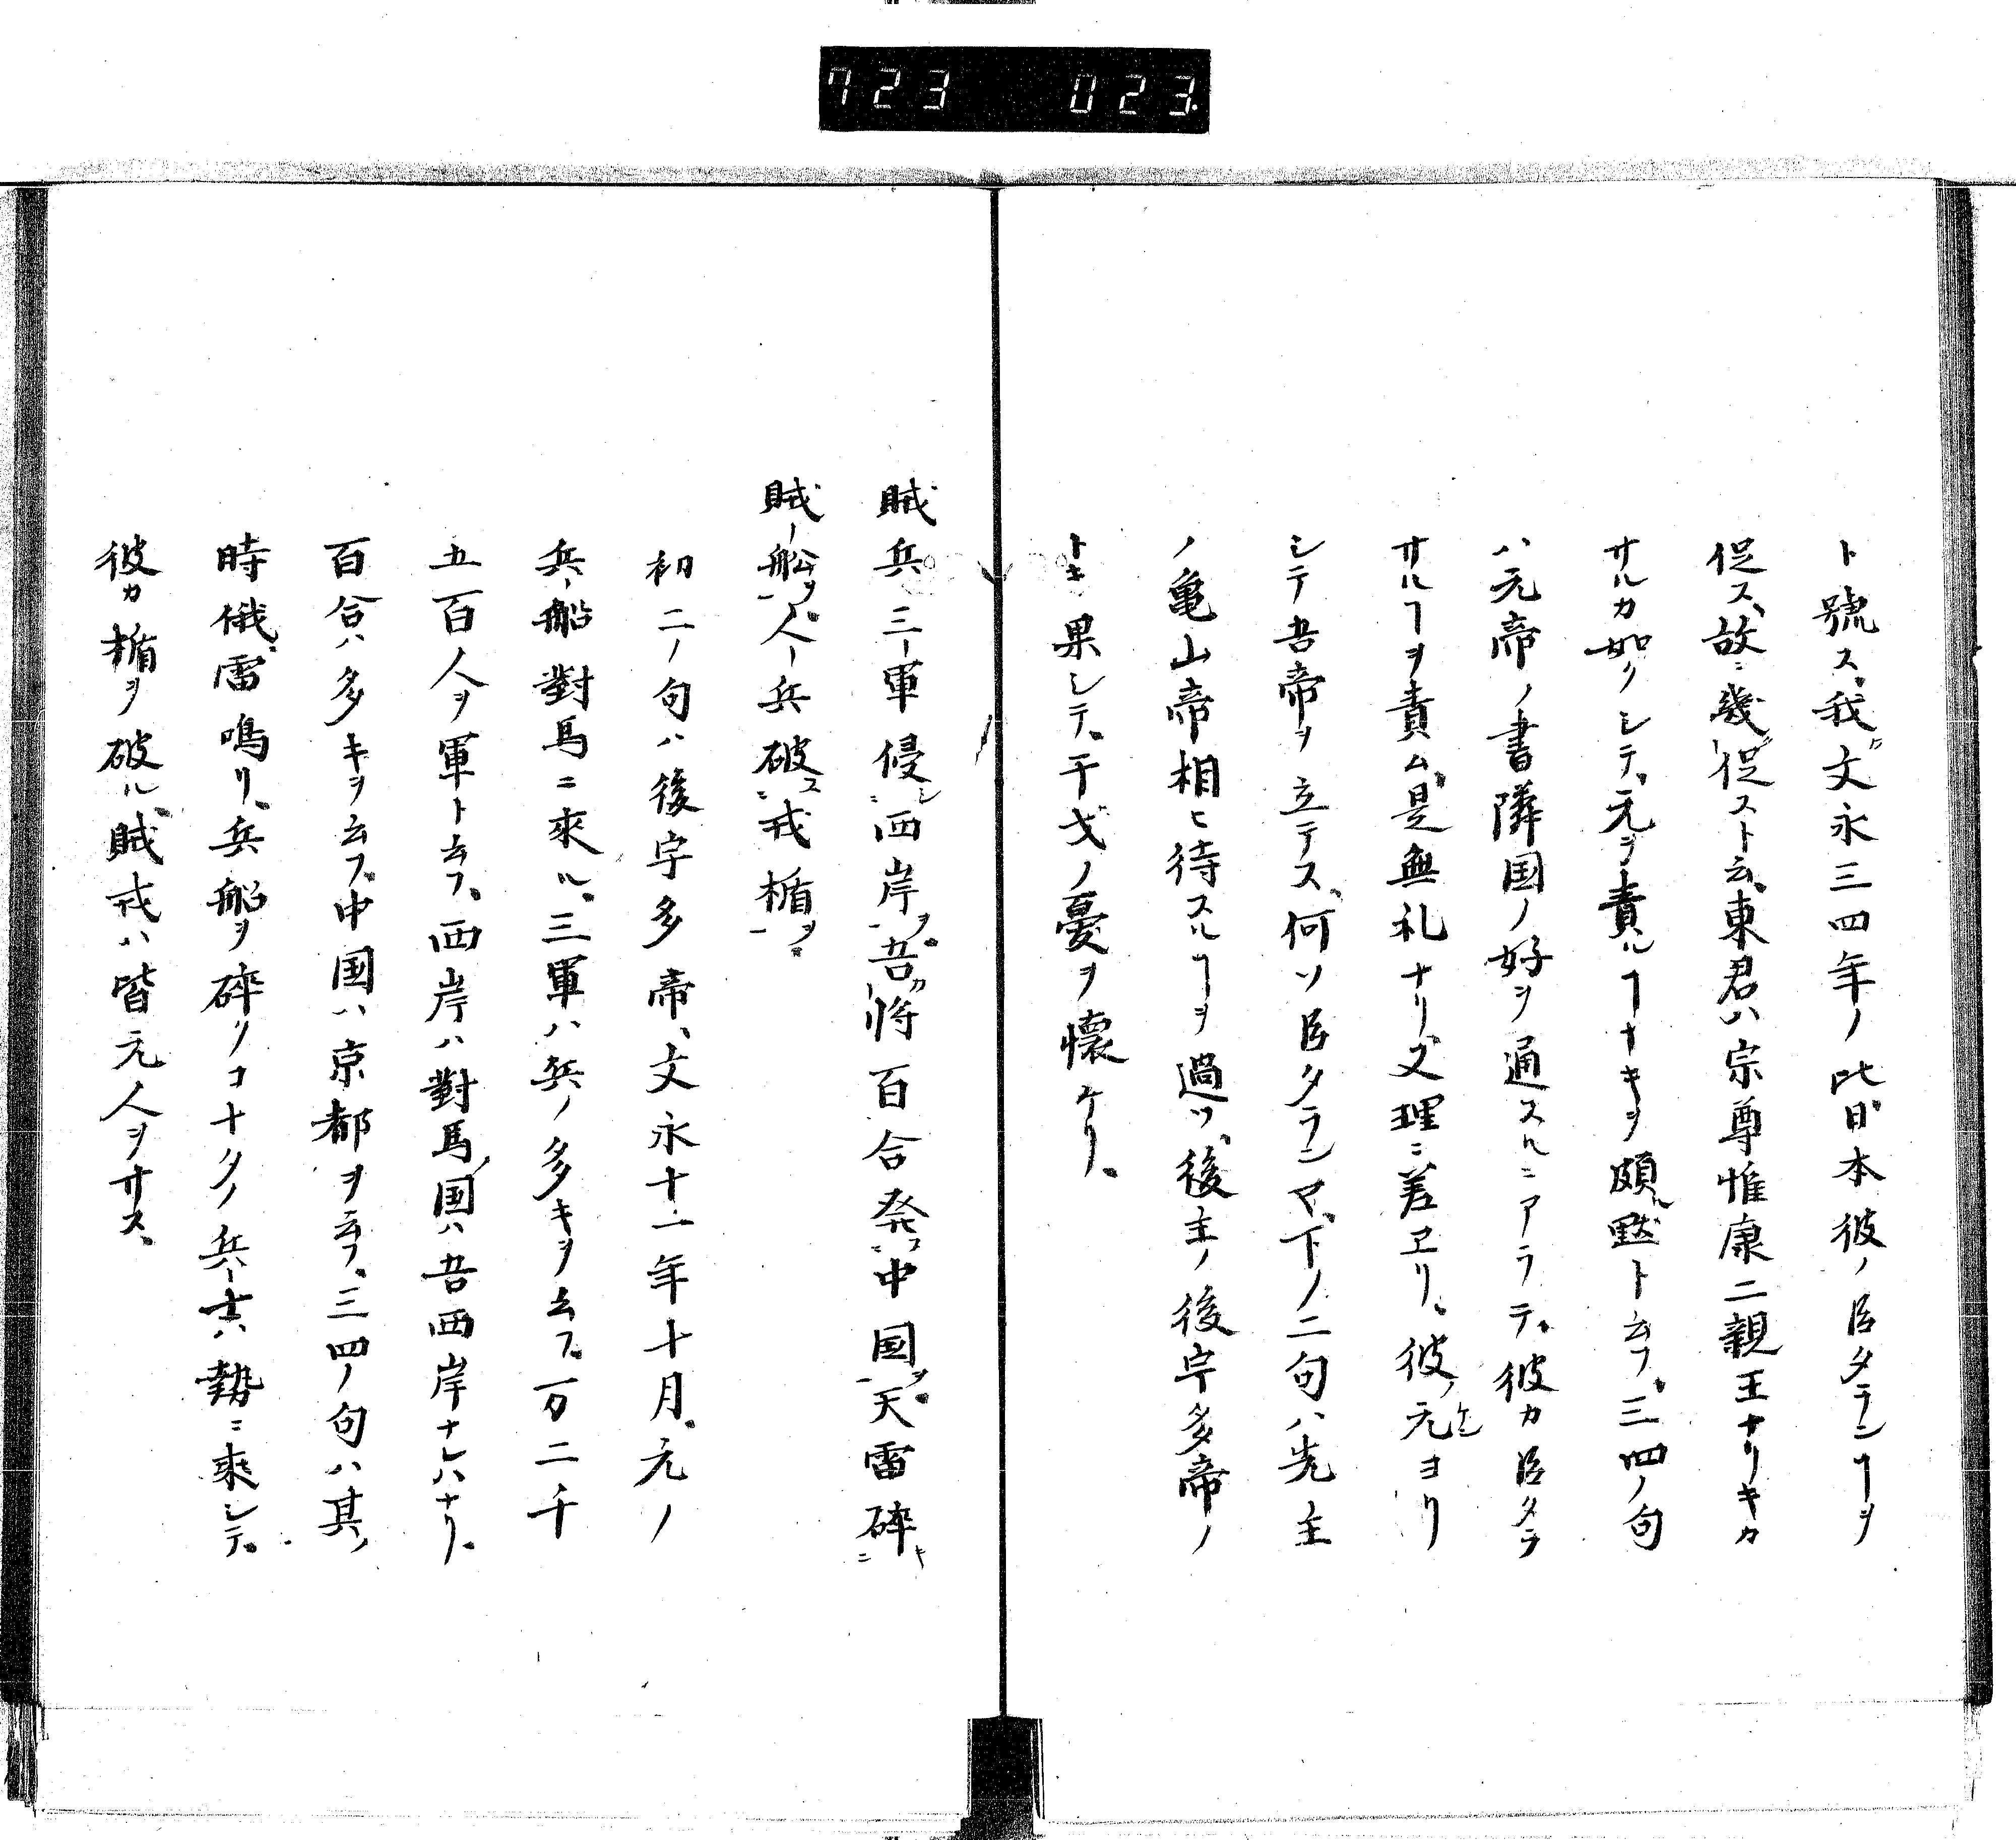 723 023
ト號ス我文永三四年ノ比日本彼ノ臣タランヿヲ
促ス故ニ幾促スト云東君ハ宗尊惟康二親王ナリキカ
サルカ如クシテ元ヲ責ルヿナキヲ頗黙ト云フ三四ノ句
ハ元帝ノ書隣国ノ好ヲ通スルニアラテ彼カ臣タラ
サルヿヲ責ム是無礼ナリ又理ニ差ヱリ彼ノ元ヨリ
シテ吾帝ヲ立テス何ソ臣タランヤ下ノ二句ハ先主
ノ亀山帝相ヒ待スルヿヲ過ツ後主ノ後宇多帝ノ
トキ果シテ干戈ノ憂ヲ懐ケリ
賊兵三軍侵西岸吾将百合発中国天雷砕
賊船人兵破戎楯
初二ノ句ハ後宇多帝文永十一年十月元ノ
兵船對馬ニ來ル三軍ハ兵ノ多キヲ云フ一万二千
五百人ヲ軍ト云フ西岸ハ對馬国ハ吾西岸ナレハナリ
百合ハ多キヲ云フ中国ハ京都ヲ云フ三四ノ句ハ其
時俄雷鳴リ兵船ヲ砕クコナタノ兵士ハ勢ニ乗シテ
彼カ楯ヲ破ル賊戎ハ皆元人ヲサス